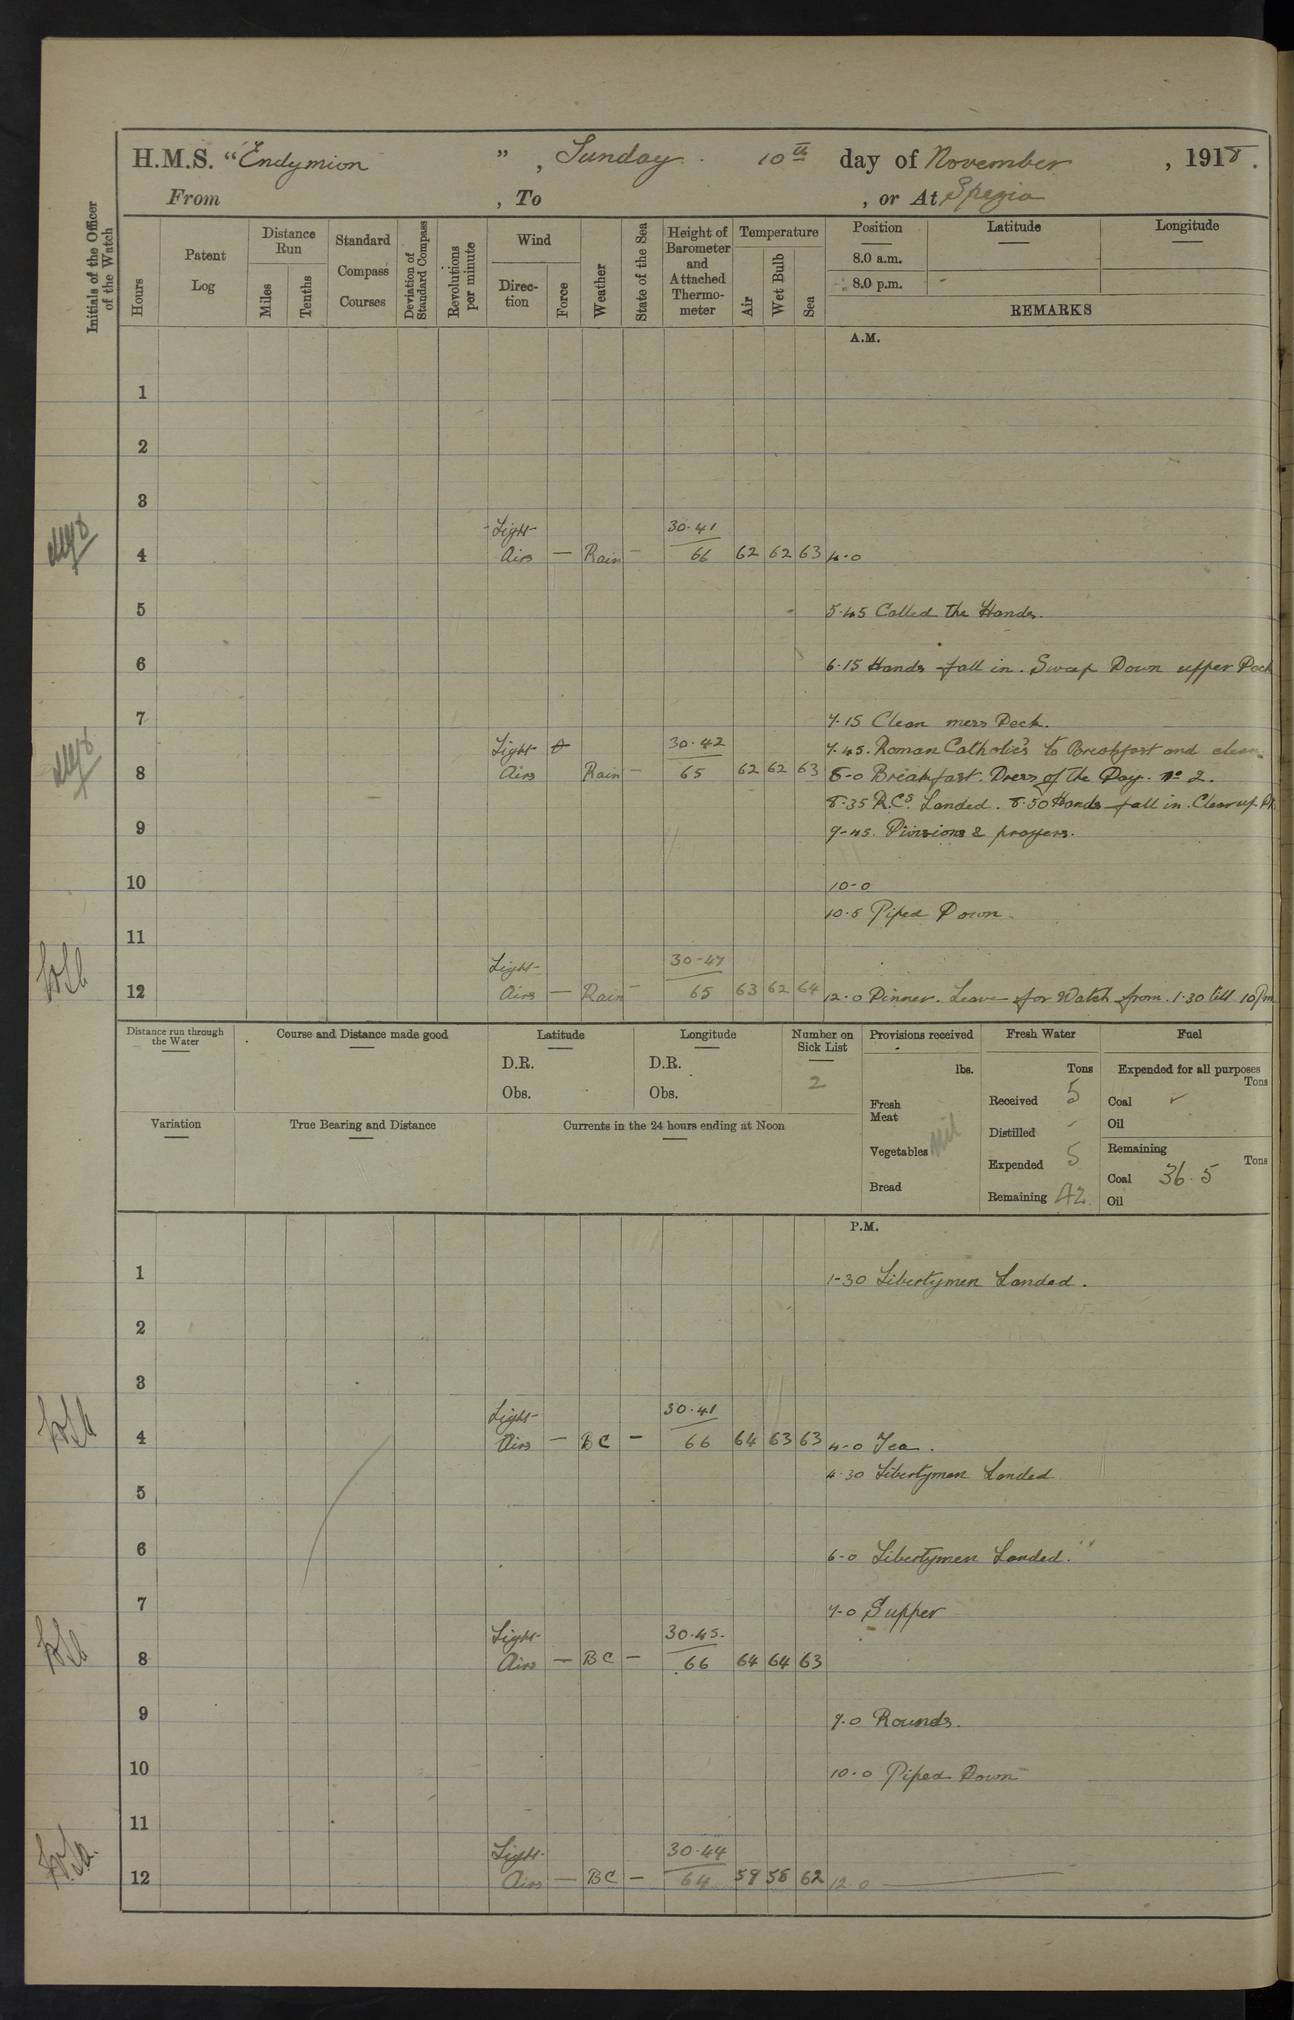 H.M.S. "Endymion", Sunday. 10th day of November, 1918.
From , To , or At Spezia
Initials of the Officer of the Watch
Hours
Patent Log
Distance Run
Miles
Tenths
Standard Compass Courses
Deviation of Standard Compass
Revolutions per minute
Wind
Direction
Force
Weather
State of the Sea
Height of Barometer and Attached Thermometer
Temperature
Air
Wet Bulb
Sea
Position
Latitude
Longitude
8.0 a.m.
8.0 p.m.
REMARKS
A.M.
1
2
3
Light 30.41
4 Airs — Rain — 66 62 62 63 4.0
5 5.45 Called the Hands.
6 6.15 Hands fall in. Sweep Down upper Deck
7 7.15 Clean mess Deck.
Light 30.42 7.45. Roman Catholics to Breakfast and clean
8 Airs Rain — 65 62 62 63 8-0 Breakfast. Dress of the Day. No 2.
8-35 R.Cs. Landed. 8.50 Hands fall in. Clear up Dk
9 9-45. Divisions & prayers.
10 10-0
10.5 Piped Down.
11
Light 30-47
12 Airs — Rain — 65 63 62 64 12-0 Dinner. Leave for Watch from. 1.30 till 10 Pm
Distance run through the Water
Course and Distance made good
Latitude
D.R.
Obs.
Longitude
D.R.
Obs.
Number on Sick List
2
Provisions received
lbs.
Fresh Meat
Vegetables Nil
Bread
Fresh Water
Tons
Received 5
Distilled
Expended 5
Remaining 42
Fuel
Expended for all purposes
Tons
Coal
Oil
Remaining
Tons
Coal 36.5
Oil
Variation
True Bearing and Distance
Currents in the 24 hours ending at Noon
P.M.
1 1-30 Libertymen Landed.
2
3
Light 30.41
4 Airs — BC — 66 64 63 63 4-0 Tea.
4.30 Libertymen Landed
5
6 6-0 Libertymen Landed.
7 7-0 Supper
Light 30.45.
8 Airs — BC — 66 64 64 63
9 9.0 Rounds.
10 10.0 Piped Down
11
Light 30.44
12 Airs — BC — 64 59 58 62 12 0 —